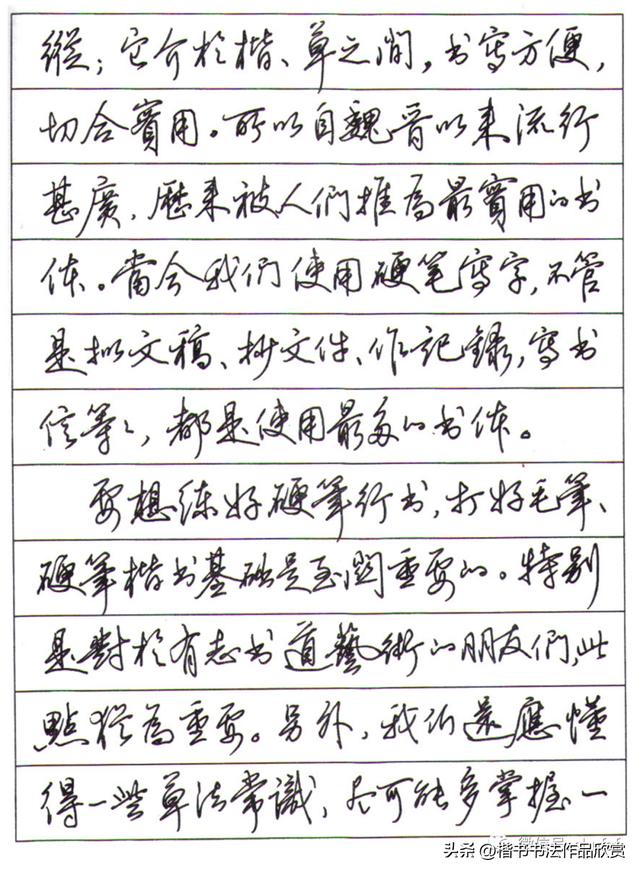 縱；它介於楷、草之间，书寫方便，
切合實用。所以自魏晋以来流行
甚廣，歷来被人們推為最實用的书
体。當今我們使用硬笔寫字，不管
是拟文稿、抄文件、作記録，寫书
信等等，都是使用最多的书体。
要想练好硬筆行书，打好毛筆、
硬筆楷书基础是至関重要的。特别
是對於有志书道藝術的朋友們，此
點猶為重要。另外，我们還應懂
得一些草法常識，尽可能多掌握一
头条 @楷书书法作品欣赏